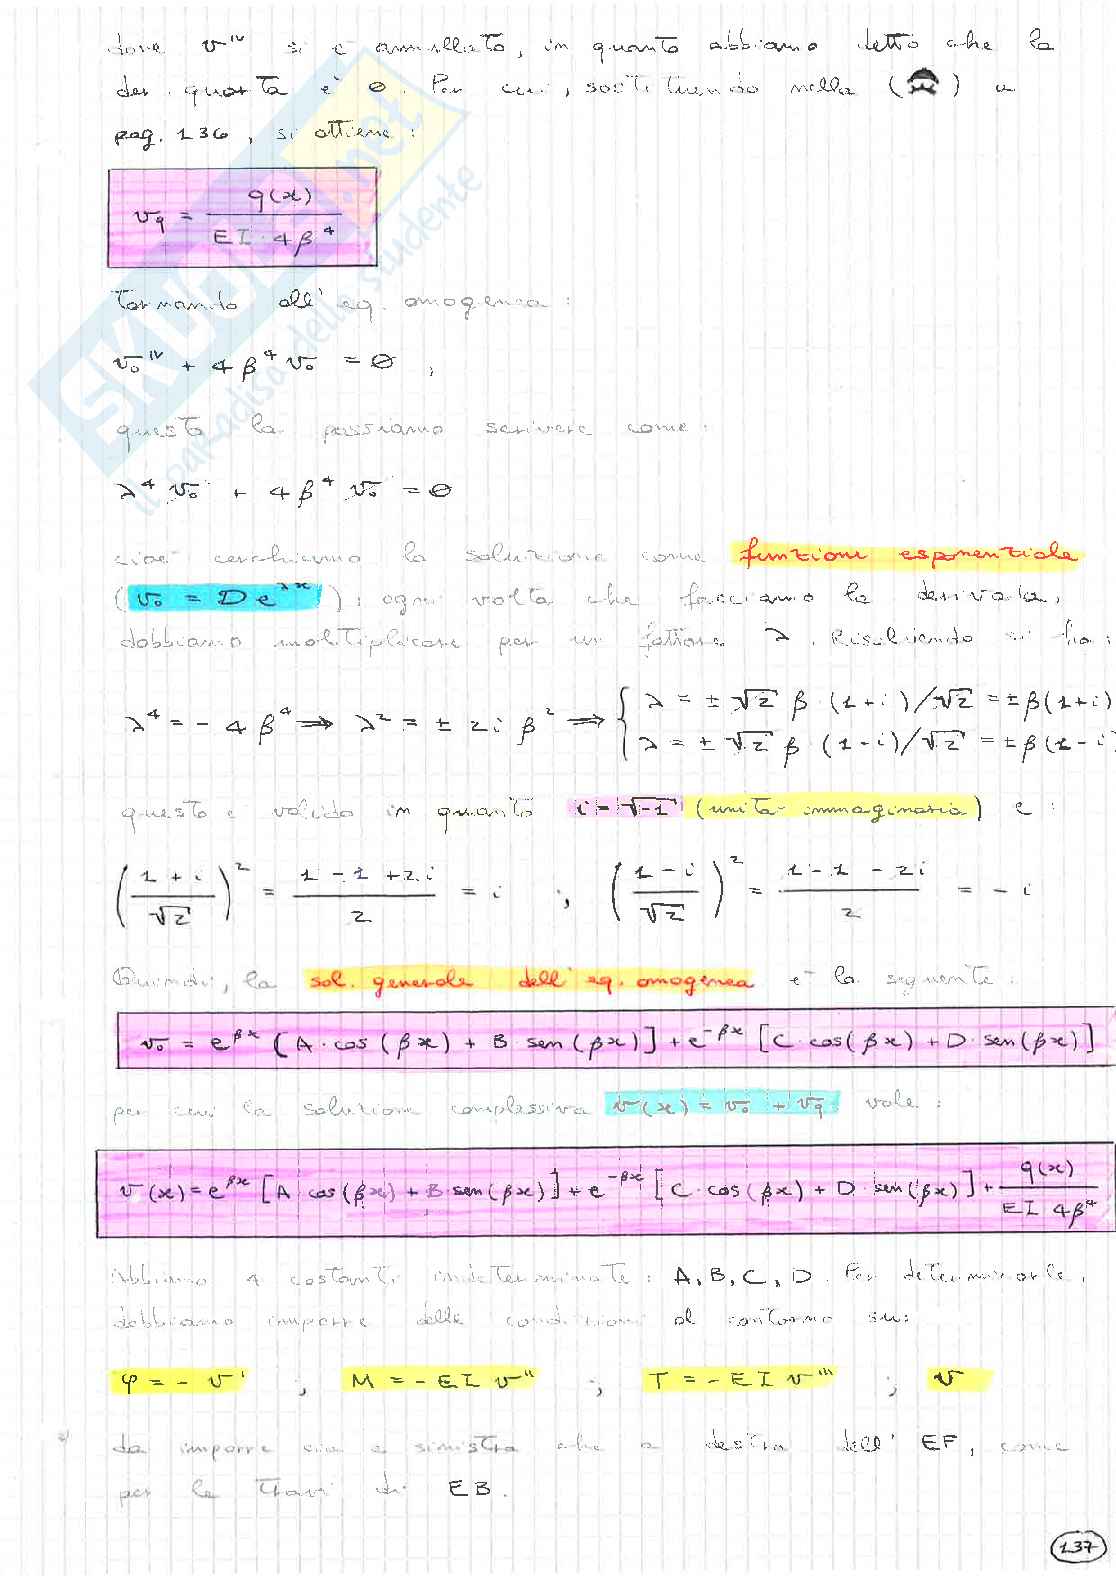 dove v^IV si è annullato, in quanto abbiamo detto che la
der. quarta è 0. Per cui, sostituendo nella ( ) a
pag. 136, si ottiene:
v_q = q(x) / (EI · 4β^4)
Tornando all'eq. omogenea:
v_0^IV + 4β^4 v_0 = 0,
questa la possiamo scrivere come:
λ^4 v_0 + 4β^4 v_0 = 0
cioè cerchiamo la soluzione come funzione esponenziale
(v_0 = D e^λx): ogni volta che facciamo la derivata,
dobbiamo moltiplicare per un fattore λ. Risolvendo si ha:
λ^4 = - 4β^4 ⇒ λ^2 = ± 2i β^2 ⇒ { λ = ± √2 β · (1+i)/√2 = ±β(1+i)
λ = ± √2 β (1-i)/√2 = ±β(1-i)
questo è valido in quanto i = √-1 (unità immaginaria) e:
((1+i)/√2)^2 = (1-1+2i)/2 = i ; ((1-i)/√2)^2 = (1-1-2i)/2 = -i
Quindi, la sol. generale dell'eq. omogenea è la seguente:
v_0 = e^βx [A·cos(βx) + B·sen(βx)] + e^-βx [C·cos(βx) + D·sen(βx)]
per cui la soluzione complessiva v(x) = v_0 + v_q vale:
v(x) = e^βx [A cos(βx) + B·sen(βx)] + e^-βx [C·cos(βx) + D·sen(βx)] + q(x) / (EI 4β^4)
Abbiamo 4 costanti indeterminate: A, B, C, D. Per determinarle,
dobbiamo imporre delle condizioni al contorno su:
φ = - v' ; M = - EI v'' ; T = - EI v''' ; v
da imporre sia a sinistra che a destra dell'EF, come
per le travi di EB.
137
SKUOLA.net
il paradiso dello studente